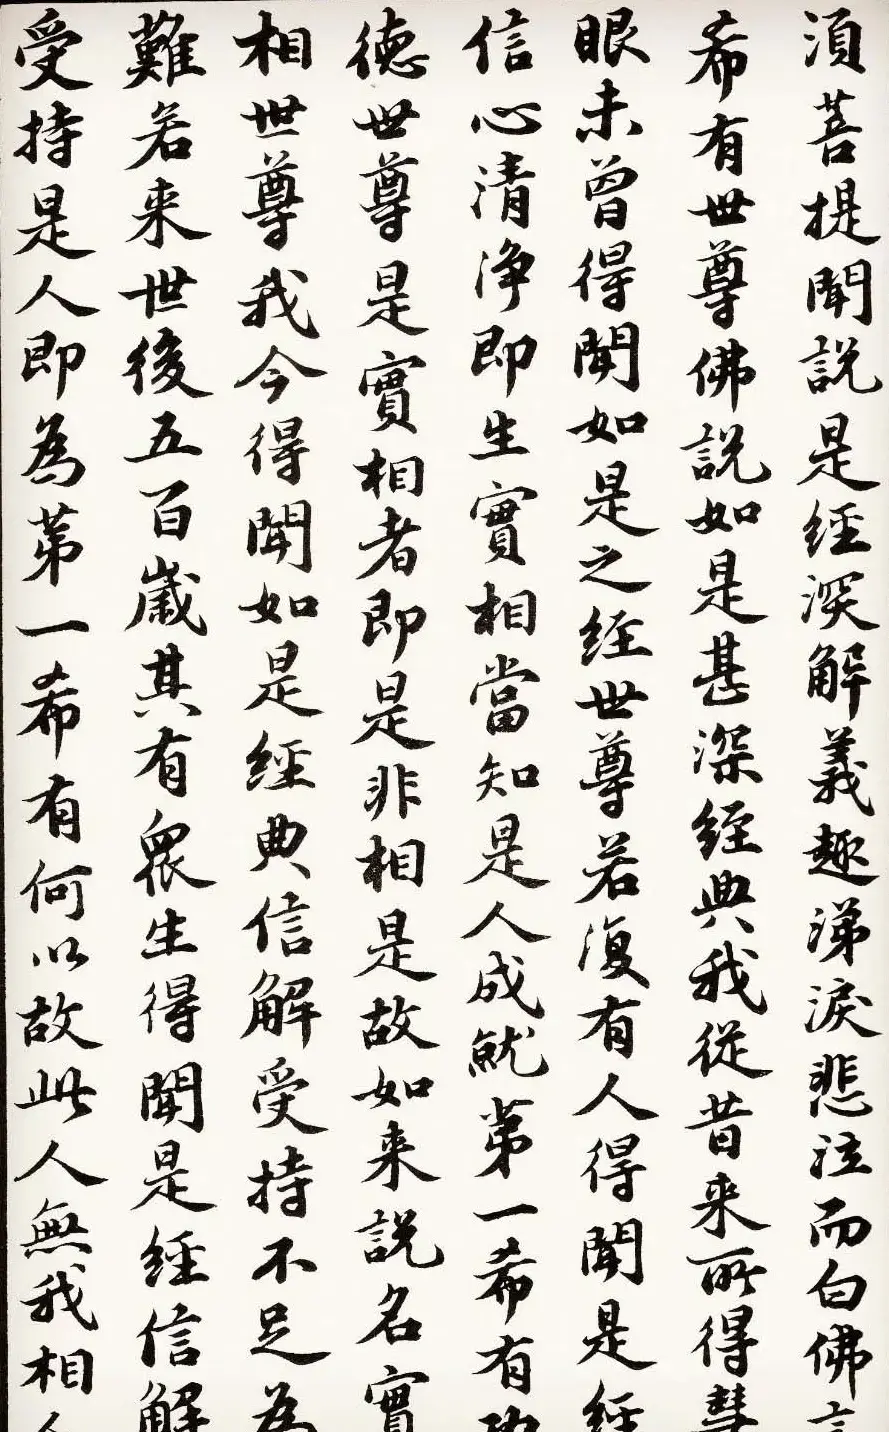 須菩提聞說是經深解義趣涕淚悲泣而白佛言
希有世尊佛說如是甚深經典我從昔来所得慧
眼未曾得聞如是之經世尊若復有人得聞是經
信心清淨即生實相當知是人成就第一希有功
德世尊是實相者即是非相是故如来說名實
相世尊我今得聞如是經典信解受持不足為
難若来世後五百歲其有眾生得聞是經信解
受持是人即為第一希有何以故此人無我相人